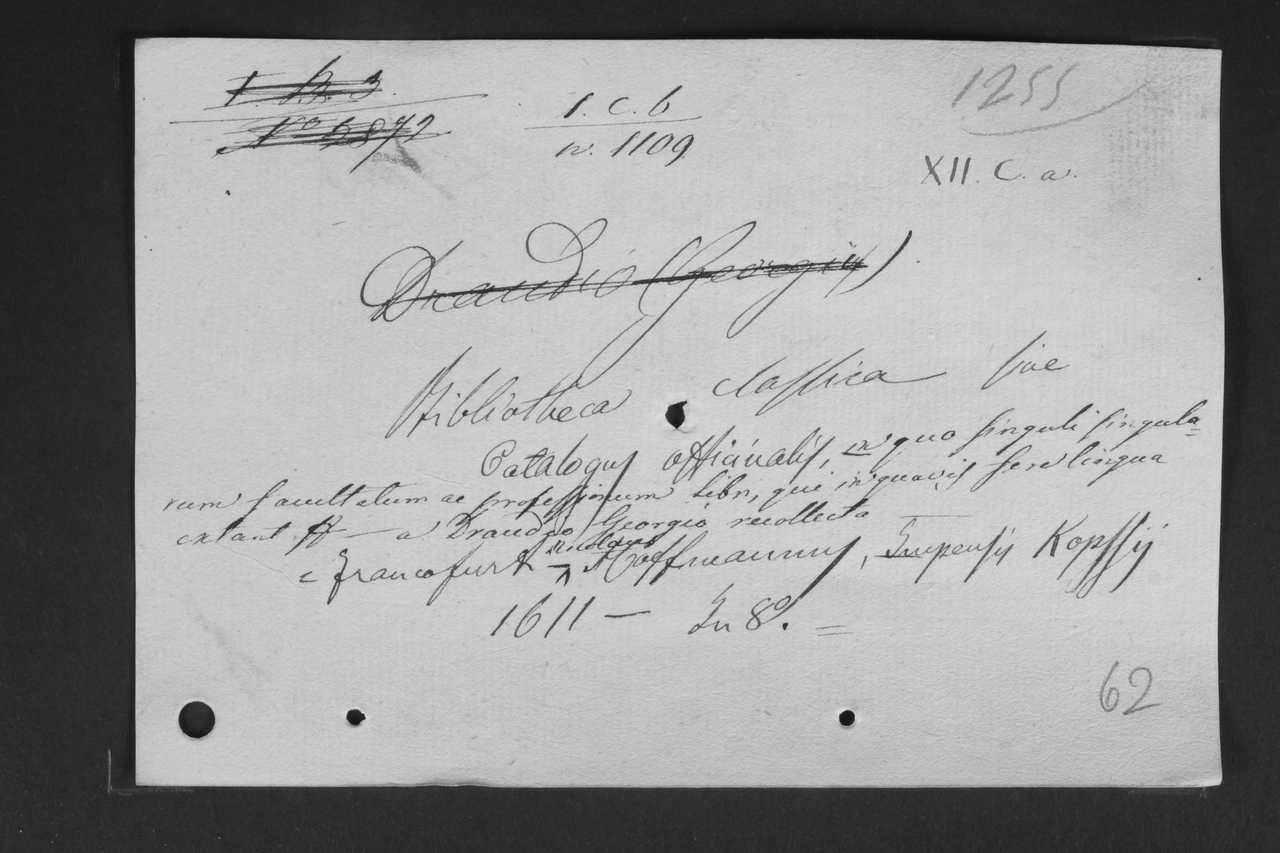 1255
1. c. b
n. 1109
XII. C. a.
Draudio (Georgius)
Bibliotheca classica sive
Catalogus officinalis, in quo singuli singula=
rum facultatum ac professionum libri, qui in quavis fere lingua
extant — a Draudio Georgio recollecta
Francofurt — Nicolaus Hoffmannus, Impensis Kopffij
1611 — In 8º. =
62